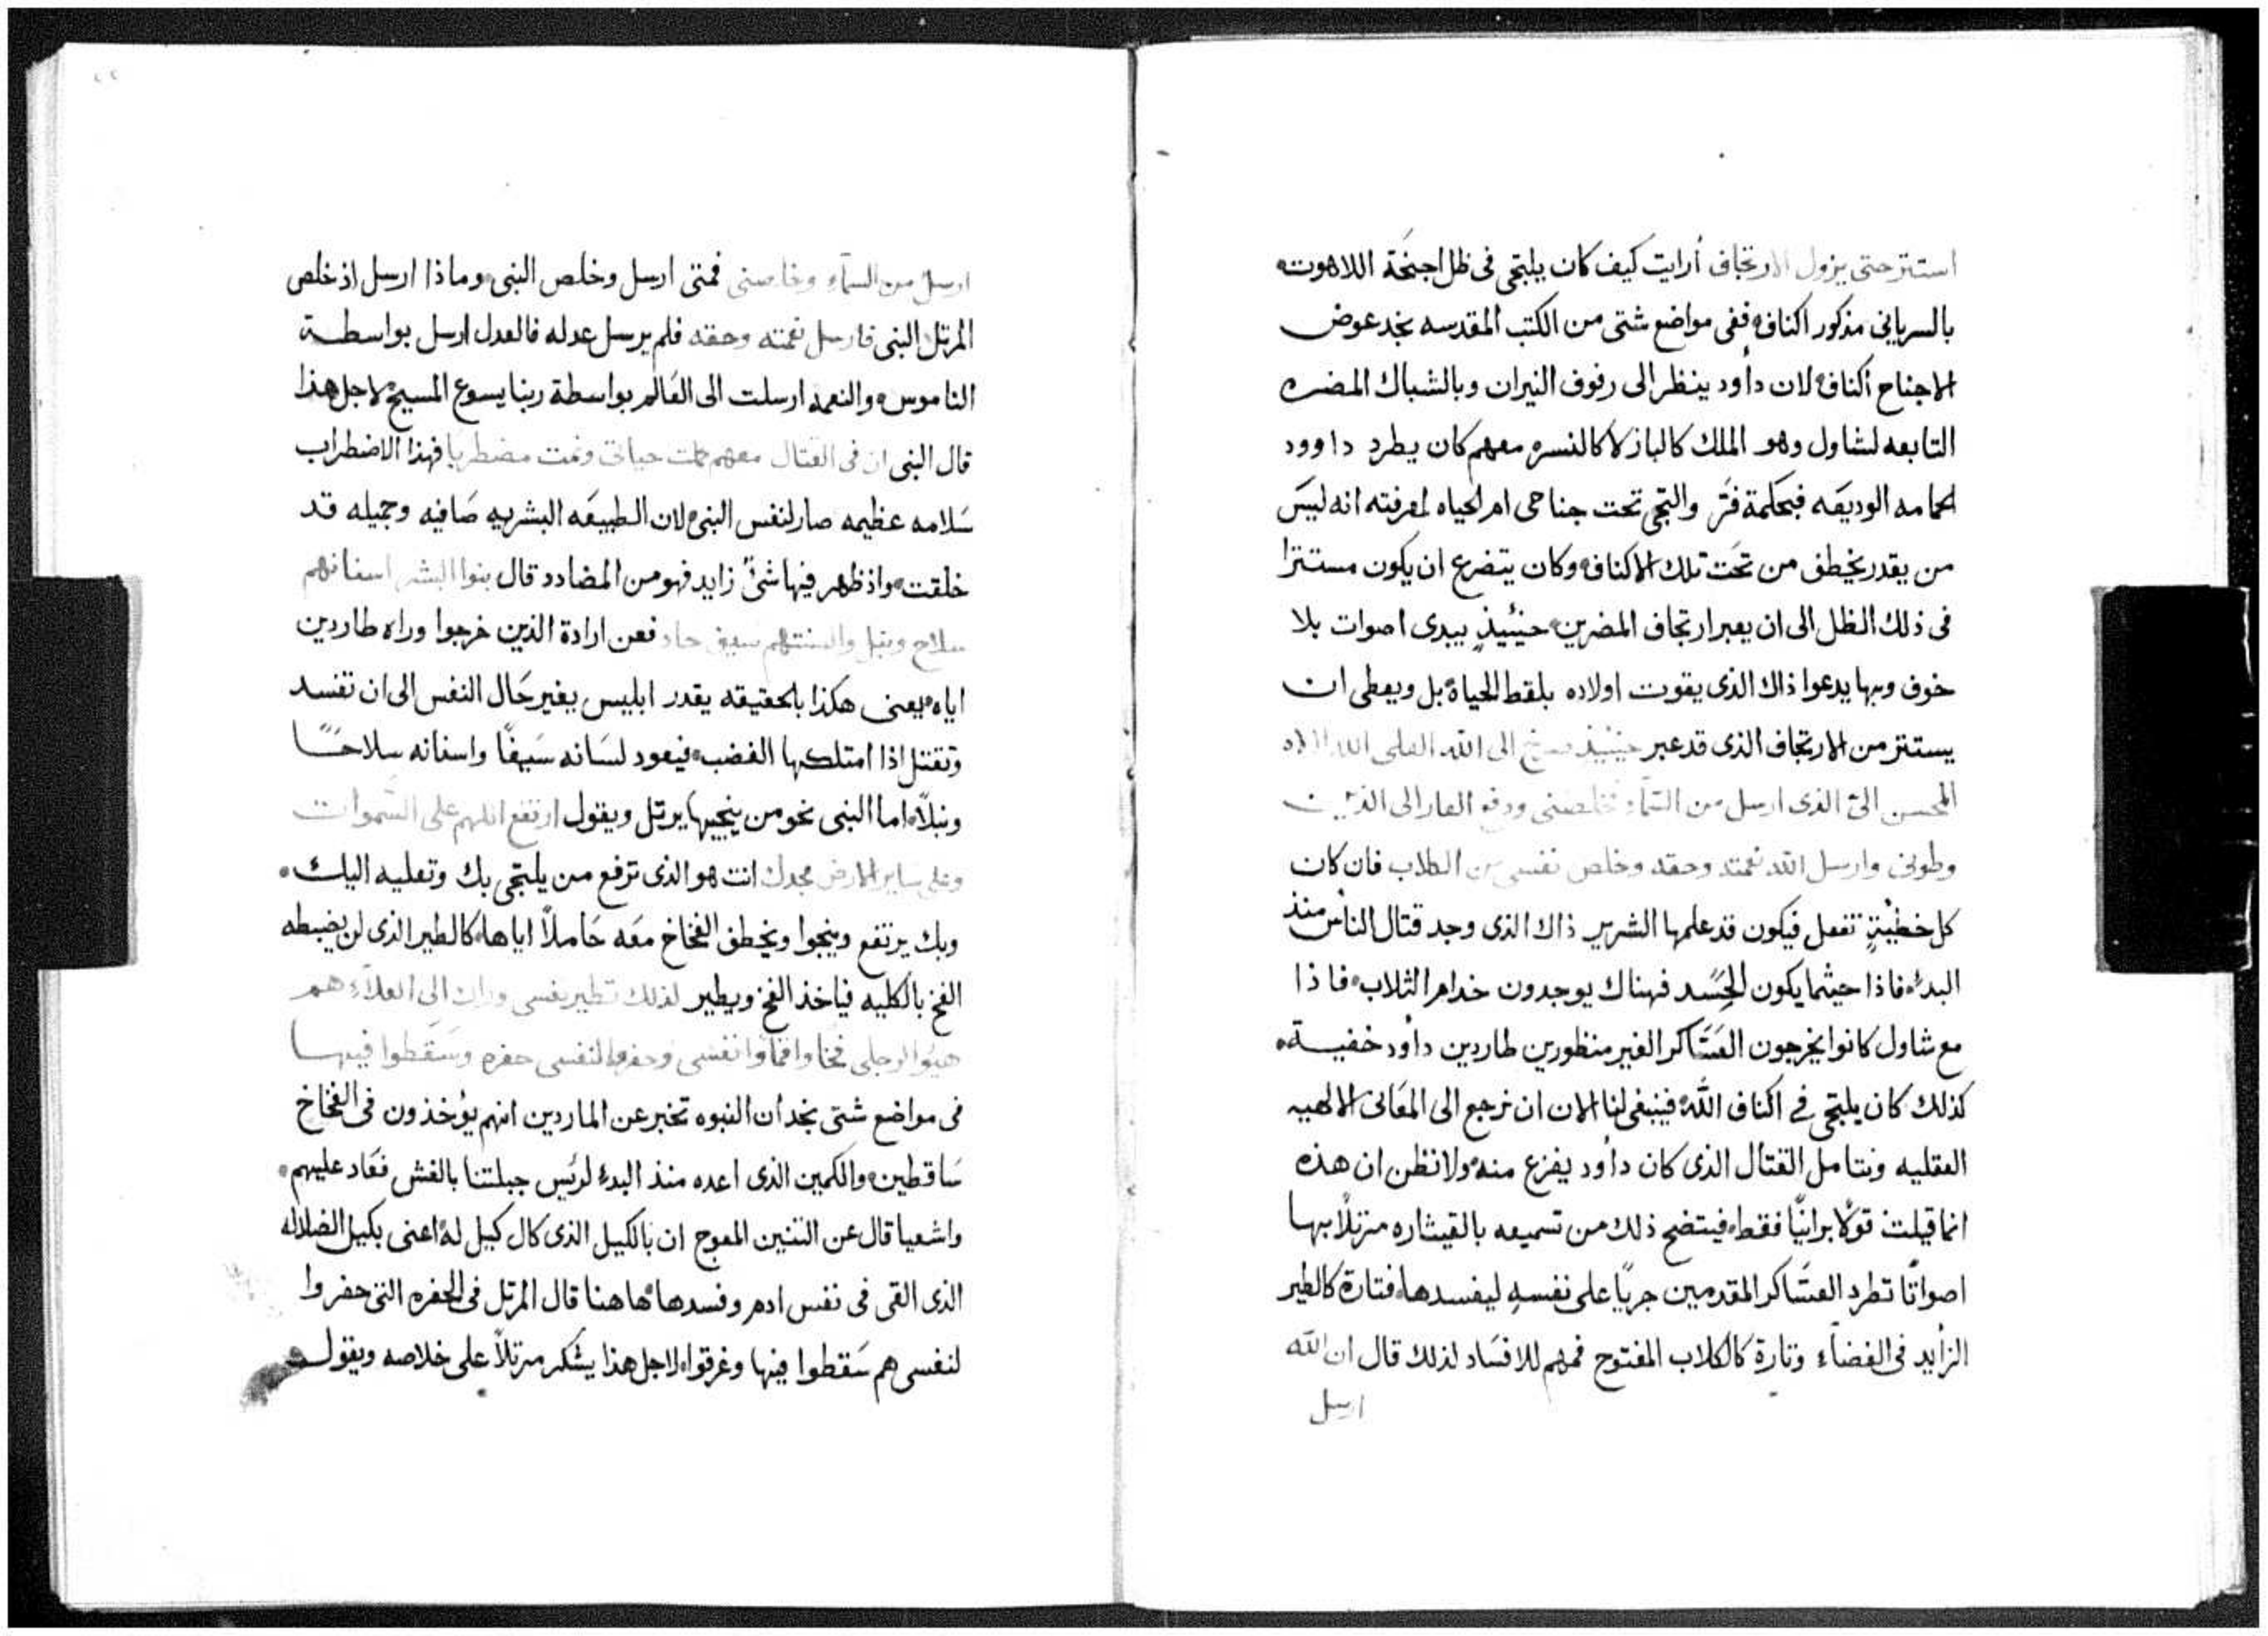 استتر حتى يزول الارتجاف أرايت كيف كان يلتجى فى ظل اجنحَة اللاهوت.
بالسريانى مذكور اكناف. ففى مواضع شتى من الكتب المقدسه نجد عوض
الاجناح أكناف. لان داود ينظر الى رفوف النيران وبالشباك المضره
التابعه لشاول وهو الملك كالباز لا كالنسره معهم كان يطرد داوود
الحمامه الوديعَه فبحكمة فَرّ والتجى تحت جناحى ام الحياه لمعرفته انه ليسَ
من يقدر يخطف من تحَت تلك الاكناف. وكان يتضرع ان يكون مستترا
فى ذلك الظل الى ان يعبر ارتجاف المضرين. حينئيذٍ يبدى اصوات بلا
خوف وبها يدعوا ذاك الذى يقوت اولاده بلقط الحياة. بل ويعطى ان
يستتر من الارتجاف الذى قد عبر حينيذ اصرخ الى الله العلى الله الاله
المحسن الىّ الذى ارسل من السّمآء فخلصنى ودفع العار الى الذين
وطونى وارسل الله نعمته وحقه وخلص نفسى من الكلاب فان كان
كل خطيْيَةٍ تفعل فيكون قد علمها الشرير ذاك الذى وجد قتال الناس منذ
البدء. فاذا حيثما يكون الحِسَد فهناك يوجدون خدام الثلاب. فاذا
مع شاول كانوا يخرجون العسَاكر الغير منظورين طاردين داود خفيــة.
كذلك كان يلتجى فى اكناف اللّه. فينبغى لنا الان ان نرجع الى المعَانى الالهيه
العقليه ونتامل القتال الذى كان داود يفزع منه. ولا نظن ان هذه
انما قيلت قولًا برانيًا فقط. فيتضح ذلك من تسميعه بالقيثاره مرتلًا بها
اصواتًا تطرد العسَاكر المقدمين جريًا على نفسهِ ليفسدها. فتارة كالطير
الزأيد فى الفضآء وتارة كالكلاب المفتوح فمهم للافسَاد لذلك قال ان الله
ارسل
ارسل من السمآء وخلصنى فمتى ارسل وخلص النبى. وماذا ارسل اذ خلص
المرتل النبى فارسل نعمته وحقه فلم يرسل عدله فالعدل ارسل بواسطــة
الناموس. والنعمه ارسلت الى العَالم بواسطة ربنا يسوع المسيح. لاجل هذا
قال النبى ان فى القتال معهم كملت حياتى ونمت مضطربا فهذا الاضطراب
سَلامه عظيمه صار لنفس النبى. لان الطبيعَه البشريه صَافيه وجميله قد
خلقت. واذ ظهر فيها شئٌ زايد فهو من المضادد قال بنوا البشر اسنانهم
سلاح ونبل والسنتهم سيف حاد فعن ارادة الذين خرجوا وراه طاردين
اياه. يعنى هكذا بالحقيقه يقدر ابليس يغير حَال النفس الى ان تفسد
وتقتل اذا امتلكها الغضب. فيعود لسَانه سَيفًا واسنانه سلاحًــا
ونبلًا. اما النبى نحو من ينجيها يرتل ويقول ارتفع اللهم على السّموات
وعلى ساير الارض مجدك انت هو الذى ترفع من يلتجى بك وتعليه اليك.
وبك يرتفع وينجوا ويخطف الفخاخ معَه حَاملًا اياها. كالطير الذى لن يضبطه
الفخ بالكليه فياخذ الفخ ويطير لذلك تطير نفسى وان الى العلآء هم
هيوا لرجلى فخا واقمأوا نفسى وحفروا لنفسى حفره وسَقطوا فيهــا
فى مواضع شتى نجد ان النبوه تخبر عن الماردين انهم يؤخذون فى الفخاخ
سَاقطين. والكمين الذى اعده منذ البدء لرئيس جبلتنا بالغش فعَاد عليهم.
واشعيا قال عن التنين المعوج ان بالكيل الذى كال كيل له. اعنى بكيل الضلاله
الذى القى فى نفس ادم وفسدها. هاهنا قال المرتل فى الحفره التى حفروا
لنفسى هم سَقطوا فيها وغرقوا. لاجل هذا يشكر مرتلًا على خلاصه ويقول